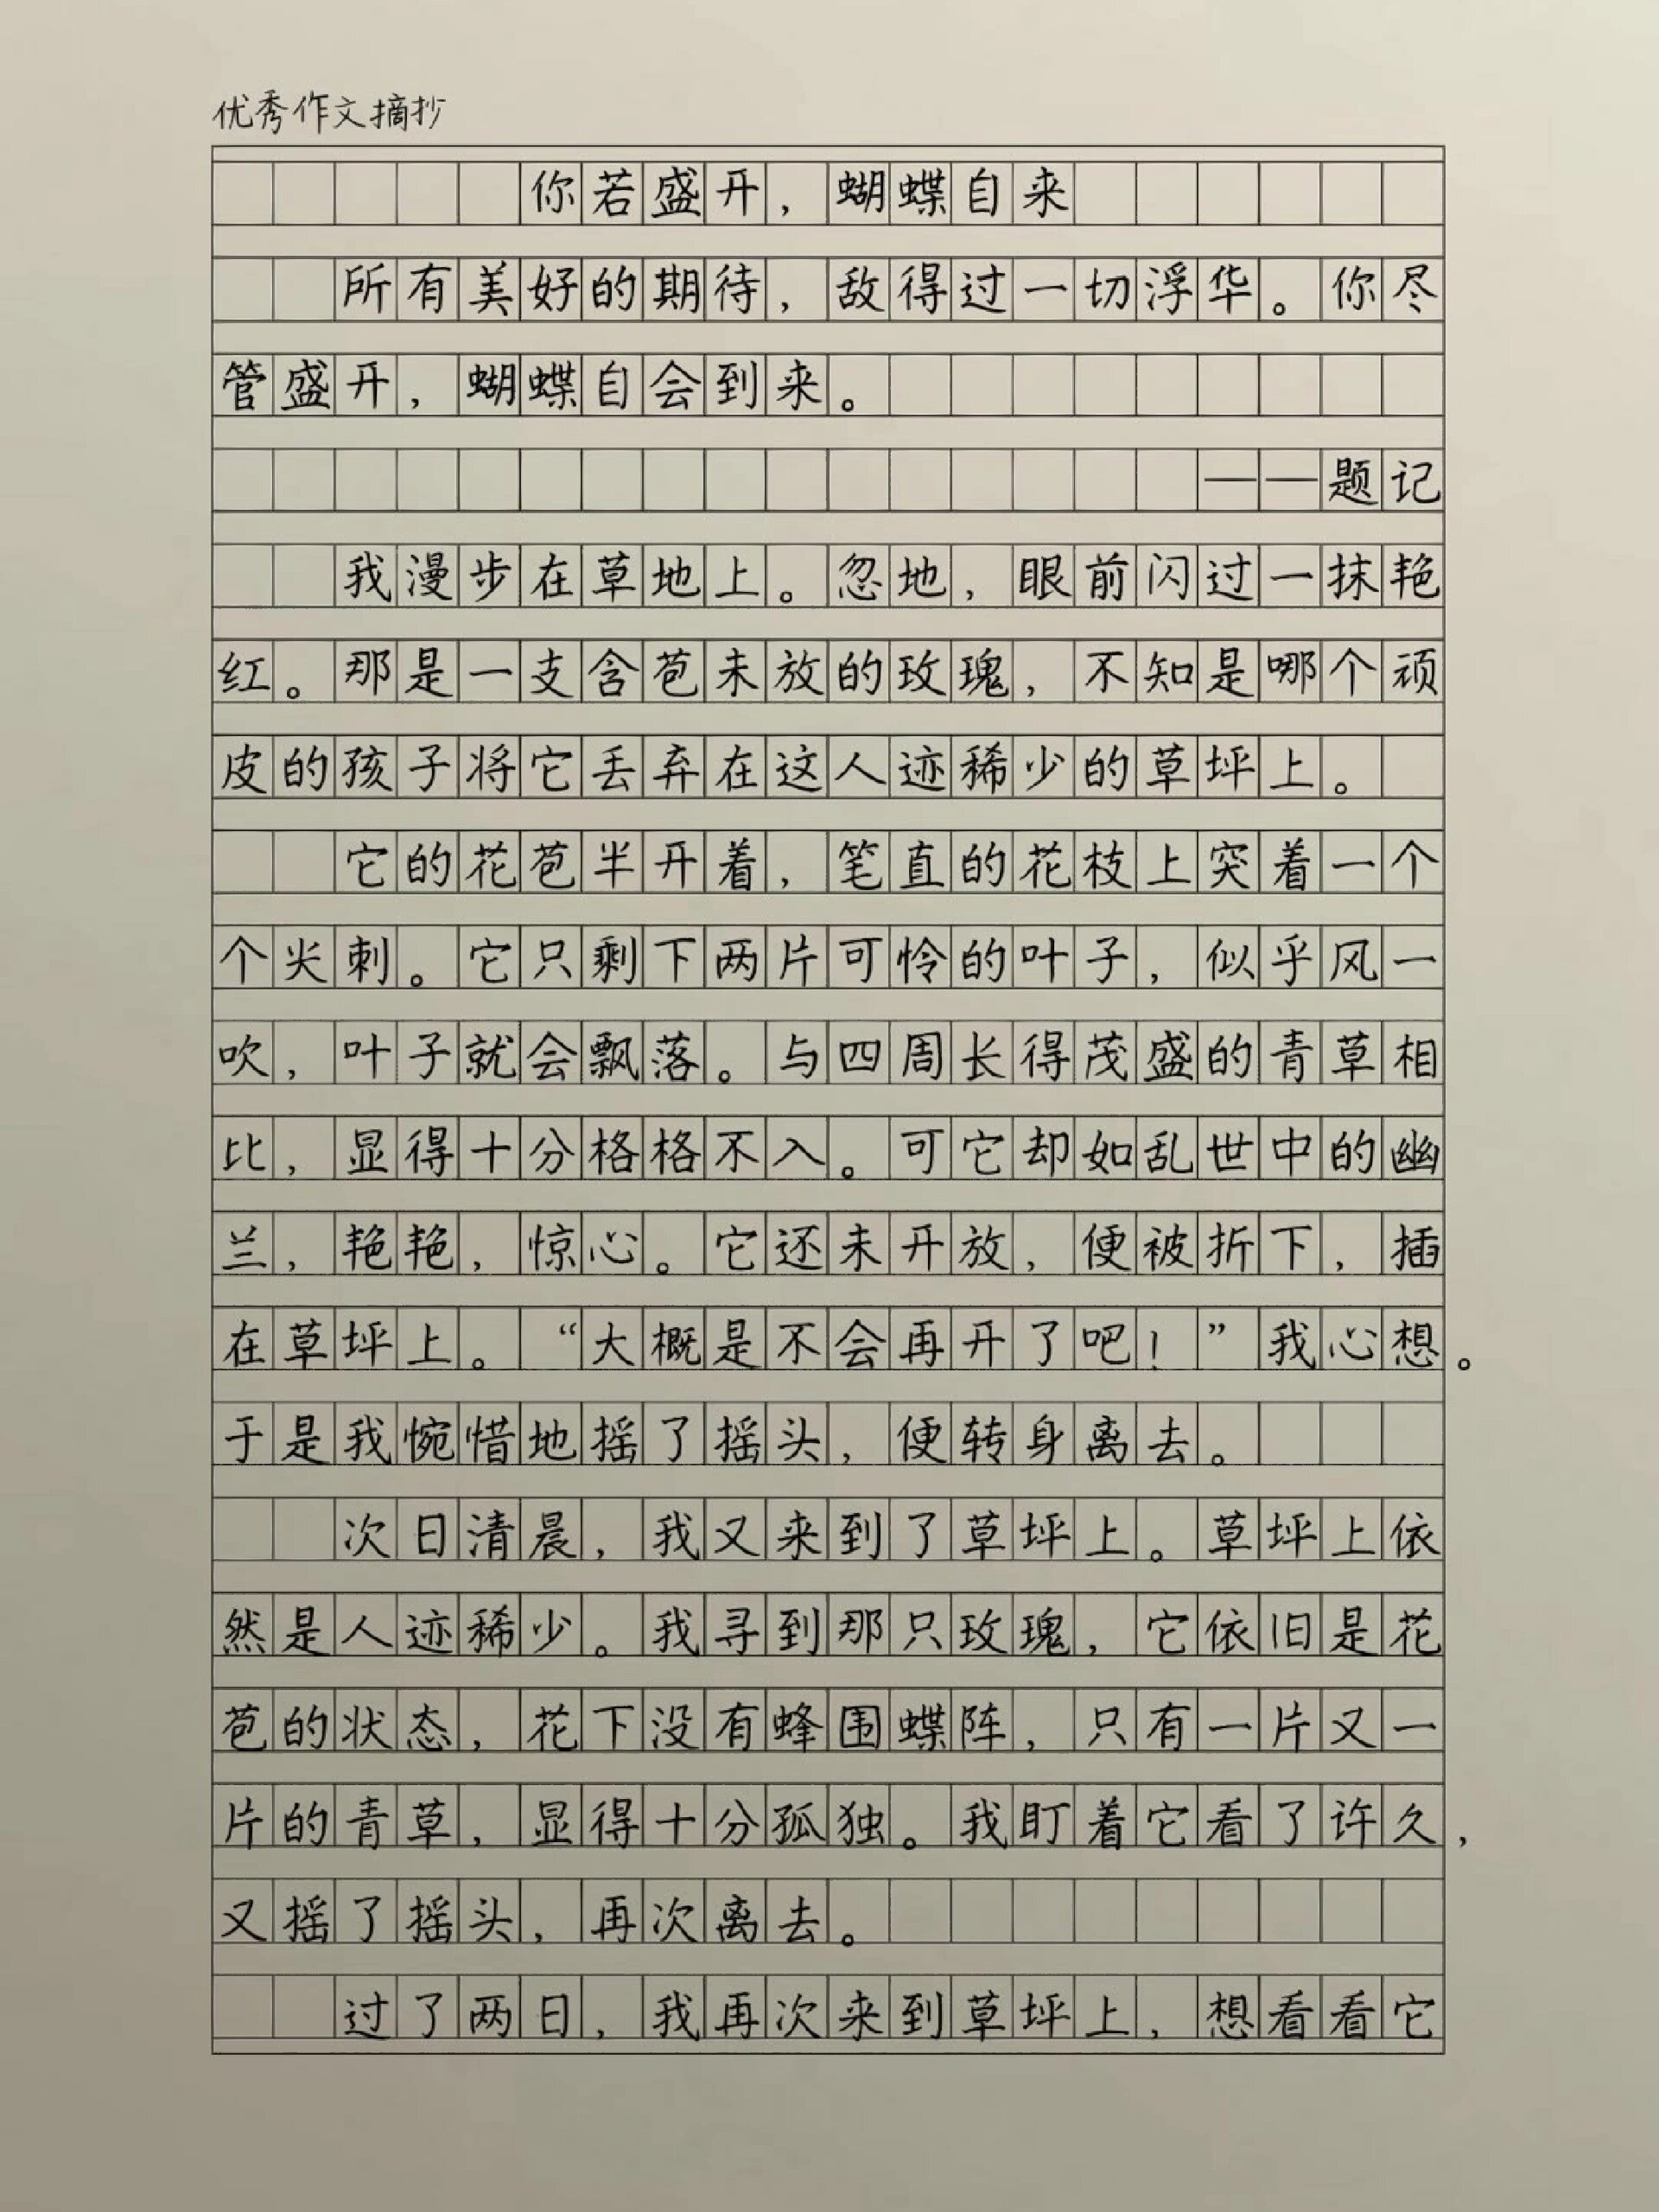 优秀作文摘抄
你若盛开，蝴蝶自来
所有美好的期待，敌得过一切浮华。你尽
管盛开，蝴蝶自会到来。
——题记
我漫步在草地上。忽地，眼前闪过一抹艳
红。那是一支含苞未放的玫瑰，不知是哪个顽
皮的孩子将它丢弃在这人迹稀少的草坪上。
它的花苞半开着，笔直的花枝上突着一个
个尖刺。它只剩下两片可怜的叶子，似乎风一
吹，叶子就会飘落。与四周长得茂盛的青草相
比，显得十分格格不入。可它却如乱世中的幽
兰，艳艳，惊心。它还未开放，便被折下，插
在草坪上。“大概是不会再开了吧！”我心想。
于是我惋惜地摇了摇头，便转身离去。
次日清晨，我又来到了草坪上。草坪上依
然是人迹稀少。我寻到那只玫瑰，它依旧是花
苞的状态，花下没有蜂围蝶阵，只有一片又一
片的青草，显得十分孤独。我盯着它看了许久，
又摇了摇头，再次离去。
过了两日，我再次来到草坪上，想看看它